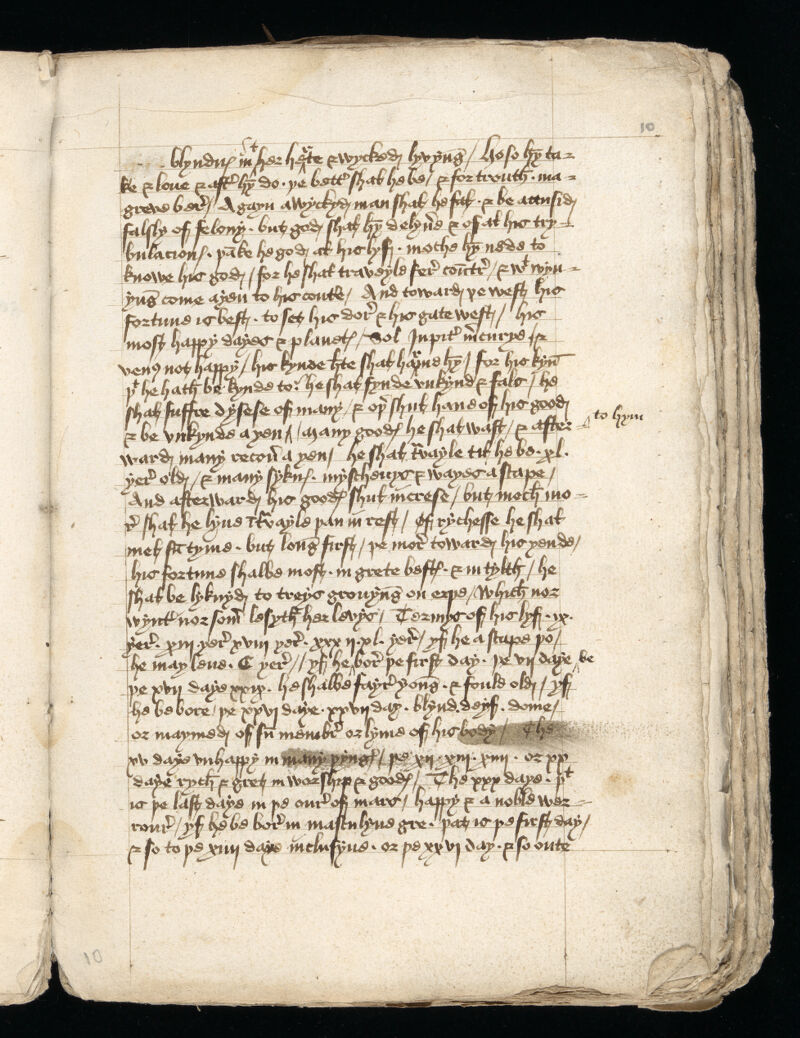 10
blyndnes in her herte & wycked lyvyng / Hoso hym ta-
ke & love & after hym do . þe better shal he be / & for trouth . ma-
greve bere / Agayn a wyckyd man shal he fal . & be accusid
falsly of felony . but god shal hym delyvere & of al his try-
bulacions . þanke he god al his lyf . moche hym nede to
knowe his god / for he shal traveyle fer contre / & wt wyn-
yng come ayen to his contre / And toward þe west his
fortune is best . to set his dore & his gate west / his
most happy dayes & planetes / Sol Jupiter mercurye / &
venus not happy / his kynde herte shal harme hym / for his kyn
þt he hath be kynde to . he shal fynde unkynd & fals / he
shal suffre dysese of many / & oþer shul have of his good
to hym
& be unkynde ayen / many goodes he shal wast / & after-
ward many recover ayen / he shal travayle til he be . xl .
yer old / & many syknes . myschevys & wayes ascape /
And afterward his goodes shul increse / but moch mo-
re shal he lyve in travayle þan in rest / Of rychesse he shal
met sum tyme . but long first / þe more toward his yende /
his fortune shal be most . in grete bestes . & in tylth / he
shal be lyknyd to treys growyng on erþe / which nor
wynter nor somer lesyth her levys / Termys of his lyf . ix .
yer . xiii yer xviii yer . xxx ii . xl . yer / yf he ascape þo /
he may leve . C yer // yf he be bore þe first day . þe vii daye
þe xvii daye xxix . he shalbe fayre yong . & fould old / yf
he be bore / þe xxvi daye . xxvii day . blynd . deyf . dome /
or maymed of sum membre or lyme of his body / The
xv daye unhappy in many þynges / þe xii . xiii . xiiii . or xx
daye rych & gret in worship & goodes / The xxx daye . þt
is þe last daye in þe oure of mars / happy & a noble wer-
rour / yf he be bore in masculyne gre . þat is þe first day /
& so to þe xiiii daye inclusyve . or þe xxvi day . & so oute
10